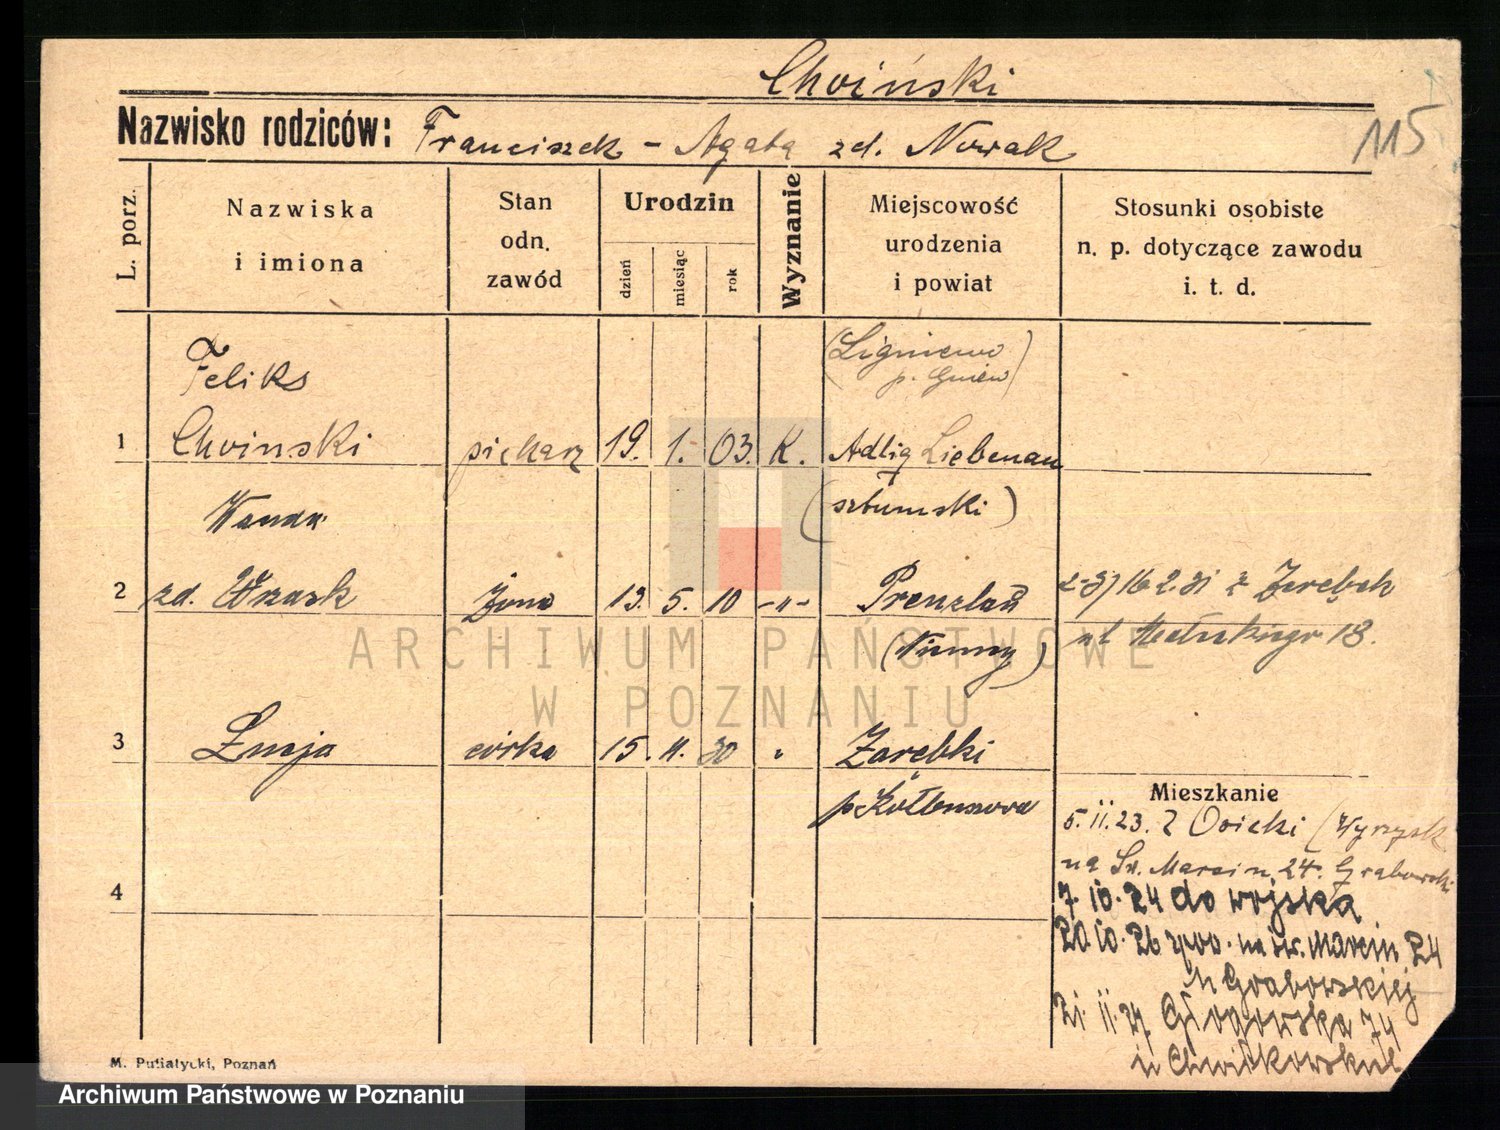 Choiński
115
Nazwisko rodziców: Franciszek - Agata zd. Nowak
L. porz.
Nazwiska i imiona
Stan odn. zawód
Urodzin
dzień
miesiąc
rok
Wyznanie
Miejscowość urodzenia i powiat
Stosunki osobiste n. p. dotyczące zawodu i. t. d.
Feliks
(Ligniewo
p. Gniew)
1 Choinski piekarz 19. 1. 03. K. Adlig Liebenau
(sztumski)
Wanda
2 zd. Wrzask żona 13. 5. 10 -"- Prenzlau
(Niemcy)
16 2. 31 z Zarębek
ul 18.
3 Łucja córka 15. 11. 30 " Zarębki
p Kolbuszowa
4
Mieszkanie
5. 11. 23. Z Osieki (Wyrzysk
na Św. Marcin 24. Grabowski
7. 10. 24 do wojska
20. 10. 26 zpow. na św. Marcin 24
u Grabowskiej
21. 11. 27 Głogowska 74
u
M. Putiatycki, Poznań
ARCHIWUM PAŃSTWOWE
W POZNANIU
Archiwum Państwowe w Poznaniu